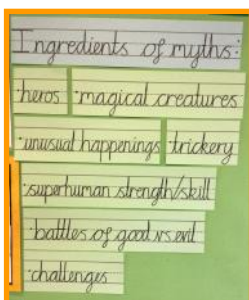 Ingredients of myths:
·heros ·magical creatures
·unusual happenings ·trickery
·superhuman strength/skill
·battles of good vs evil
·challenges